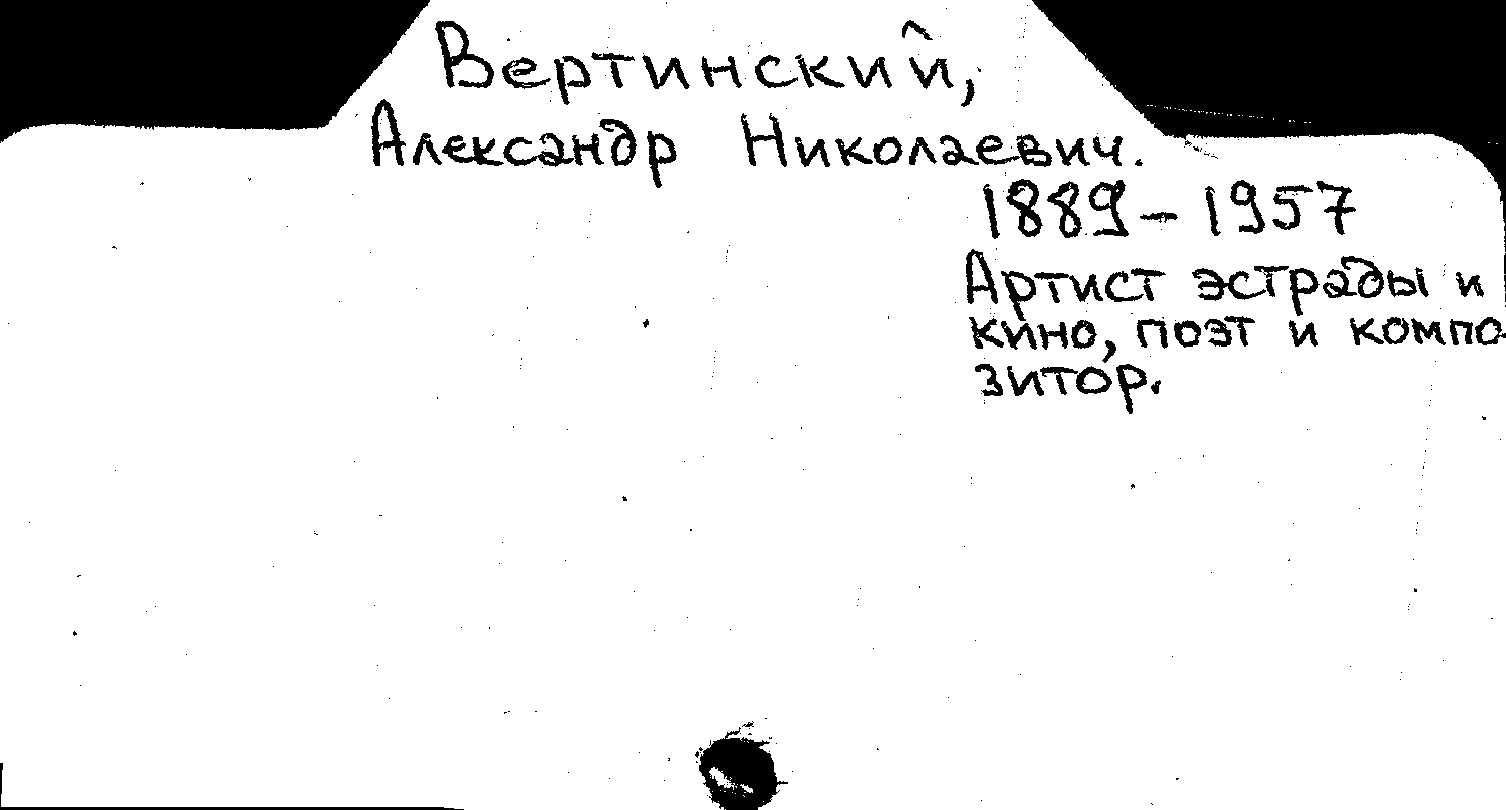 Вертинский,
Александр Николаевич.
1889 – 1957
Артист эстрады и
кино, поэт и компо-
зитор.